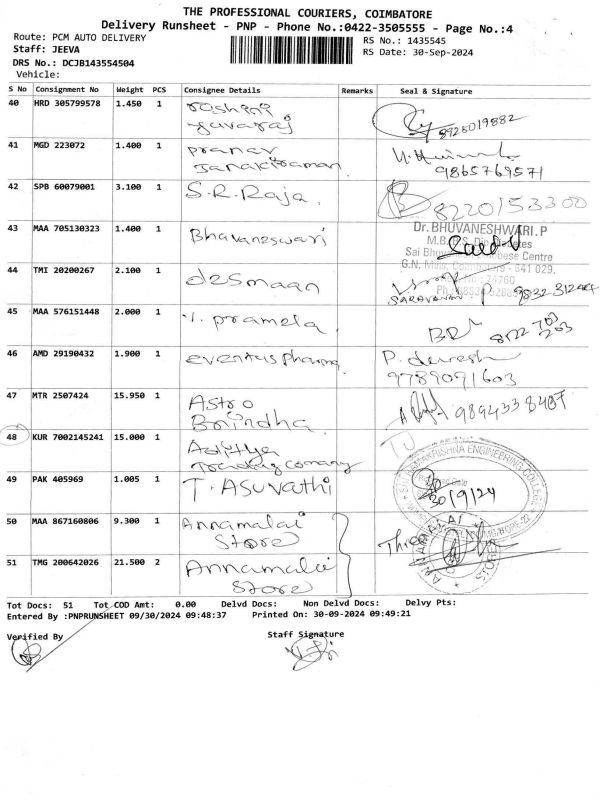 THE PROFESSIONAL COURIERS, COIMBATORE
Delivery Runsheet - PNP - Phone No.:0422-3505555 - Page No.:4
Route: PCM AUTO DELIVERY RS No.: 1435545
Staff: JEEVA RS Date: 30-Sep-2024
DRS No.: DCJB143554504
Vehicle:
S No Consignment No Weight PCS Consignee Details Remarks Seal & Signature
40 HRD 305799578 1.450 1 roshini
yuvaraj 8925019882
41 MGD 223072 1.400 1 pranav
Janakiraman 9865769571
42 SPB 60079001 3.100 1 S.R.Raja. 8220153300
43 MAA 705130323 1.400 1 Bhavaneswari Dr. BHUVANESHWARI.P
Sai Centre
G.N. 641 029.
44 TMI 20200267 2.100 1 desmaan SARAVANAN P
45 MAA 576151448 2.000 1 V. pramela 8122 703 203
46 AMD 29190432 1.900 1 eventus pharma P. duresh
9789091603
47 MTR 2507424 15.950 1 Astro
Brindha 9894338487
48 KUR 7002145241 15.000 1 Adithya
Trading comany
49 PAK 405969 1.005 1 T. ASuvathi RAMAKRISHNA ENGINEERING COLLEGE
30/9/24
50 MAA 867160806 9.300 1 Annamalai
Store
51 TMG 200642026 21.500 2 Annamalai
Store
Tot Docs: 51 Tot COD Amt: 0.00 Delvd Docs: Non Delvd Docs: Delvy Pts:
Entered By :PNPRUNSHEET 09/30/2024 09:48:37 Printed On: 30-09-2024 09:49:21
Verified By Staff Signature